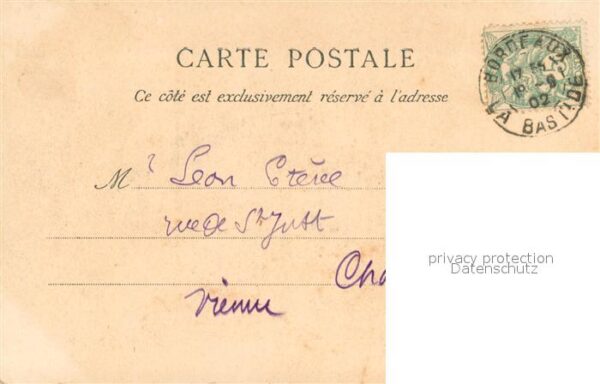 CARTE POSTALE
Ce côté est exclusivement réservé à l'adresse
BORDEAUX
17
02
LA BASTIDE
M r Leon
rue de St Just
Cha
Vienne
privacy protection
Datenschutz